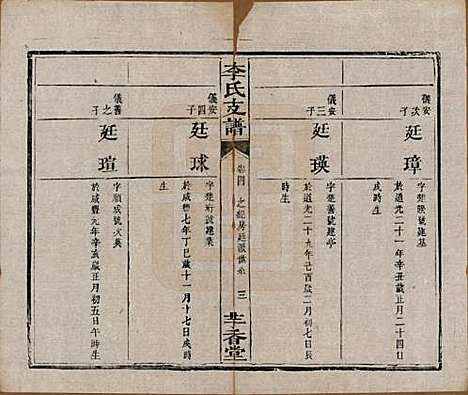 儀安次子
廷璋
字楚 號建基
於道光二十一年辛丑歲正月二十四日
戌時生
儀安三子
廷瑛
字楚善號建亭
於道光二十九年己酉歲二月初七日辰
時生
李氏支譜
卷四
三
芸香堂
儀安四子
廷球
字楚 號建業
於咸豐七年丁巳歲十一月十七日戌時
生
儀善之子
廷瑄
字順成號大典
於咸豐元年辛亥歲正月初五日午時生